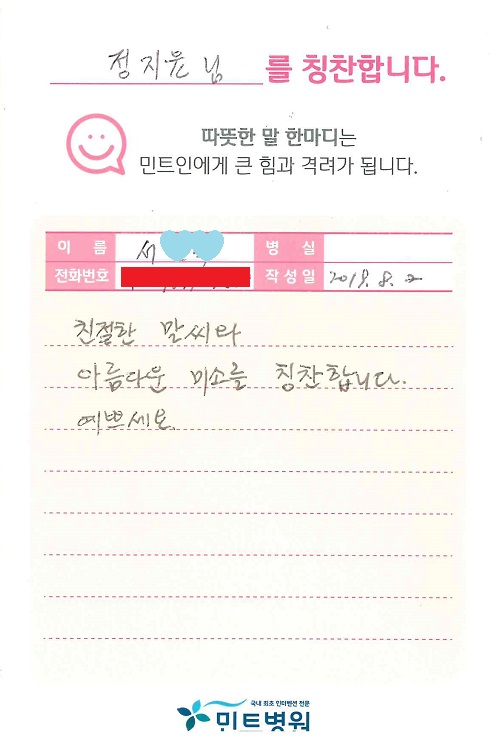 정지윤님 를 칭찬합니다.
따뜻한 말 한마디는
민트인에게 큰 힘과 격려가 됩니다.
이 름 서 병 실
전화번호 작성일 2019. 8. 2
친절한 말씨와
아름다운 미소를 칭찬합니다.
예쁘세요.
국내 최초 인터벤션 전문
민트병원